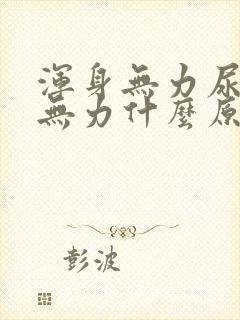 渾身無力尿
無力什麼原
彭波